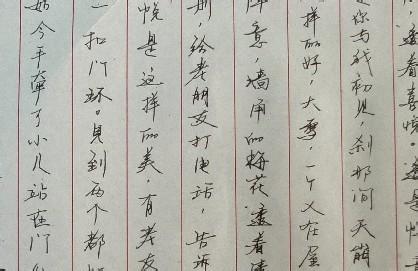 ，透着喜悦。透是悦
是你与我初见，刹那间天崩
样的好，大雪，一个人在屋
意，墙角的梅花透着清
别，给老朋友打电话，告诉
悦是这样的美，有老友
一扣门环。见到两个都
如今平牵了小儿站在门